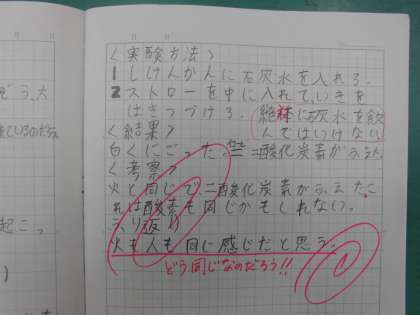 ぞう、大
ているのだろう
起こっ
<実験方法>
1 しけんかんに石灰水を入れる。
2 ストローを中に入れていきを
はきつづける。(絶対に石灰水を飲
んではいけない)
<結果>
白くにごった。 二酸化炭素がふえた。
<考察>
火と同じで二酸化炭素がふえたこ
れは酸素も同じかもしれない。
ふり返り
火も人も同じ感じだと思う。
どう同じなのだろう!!